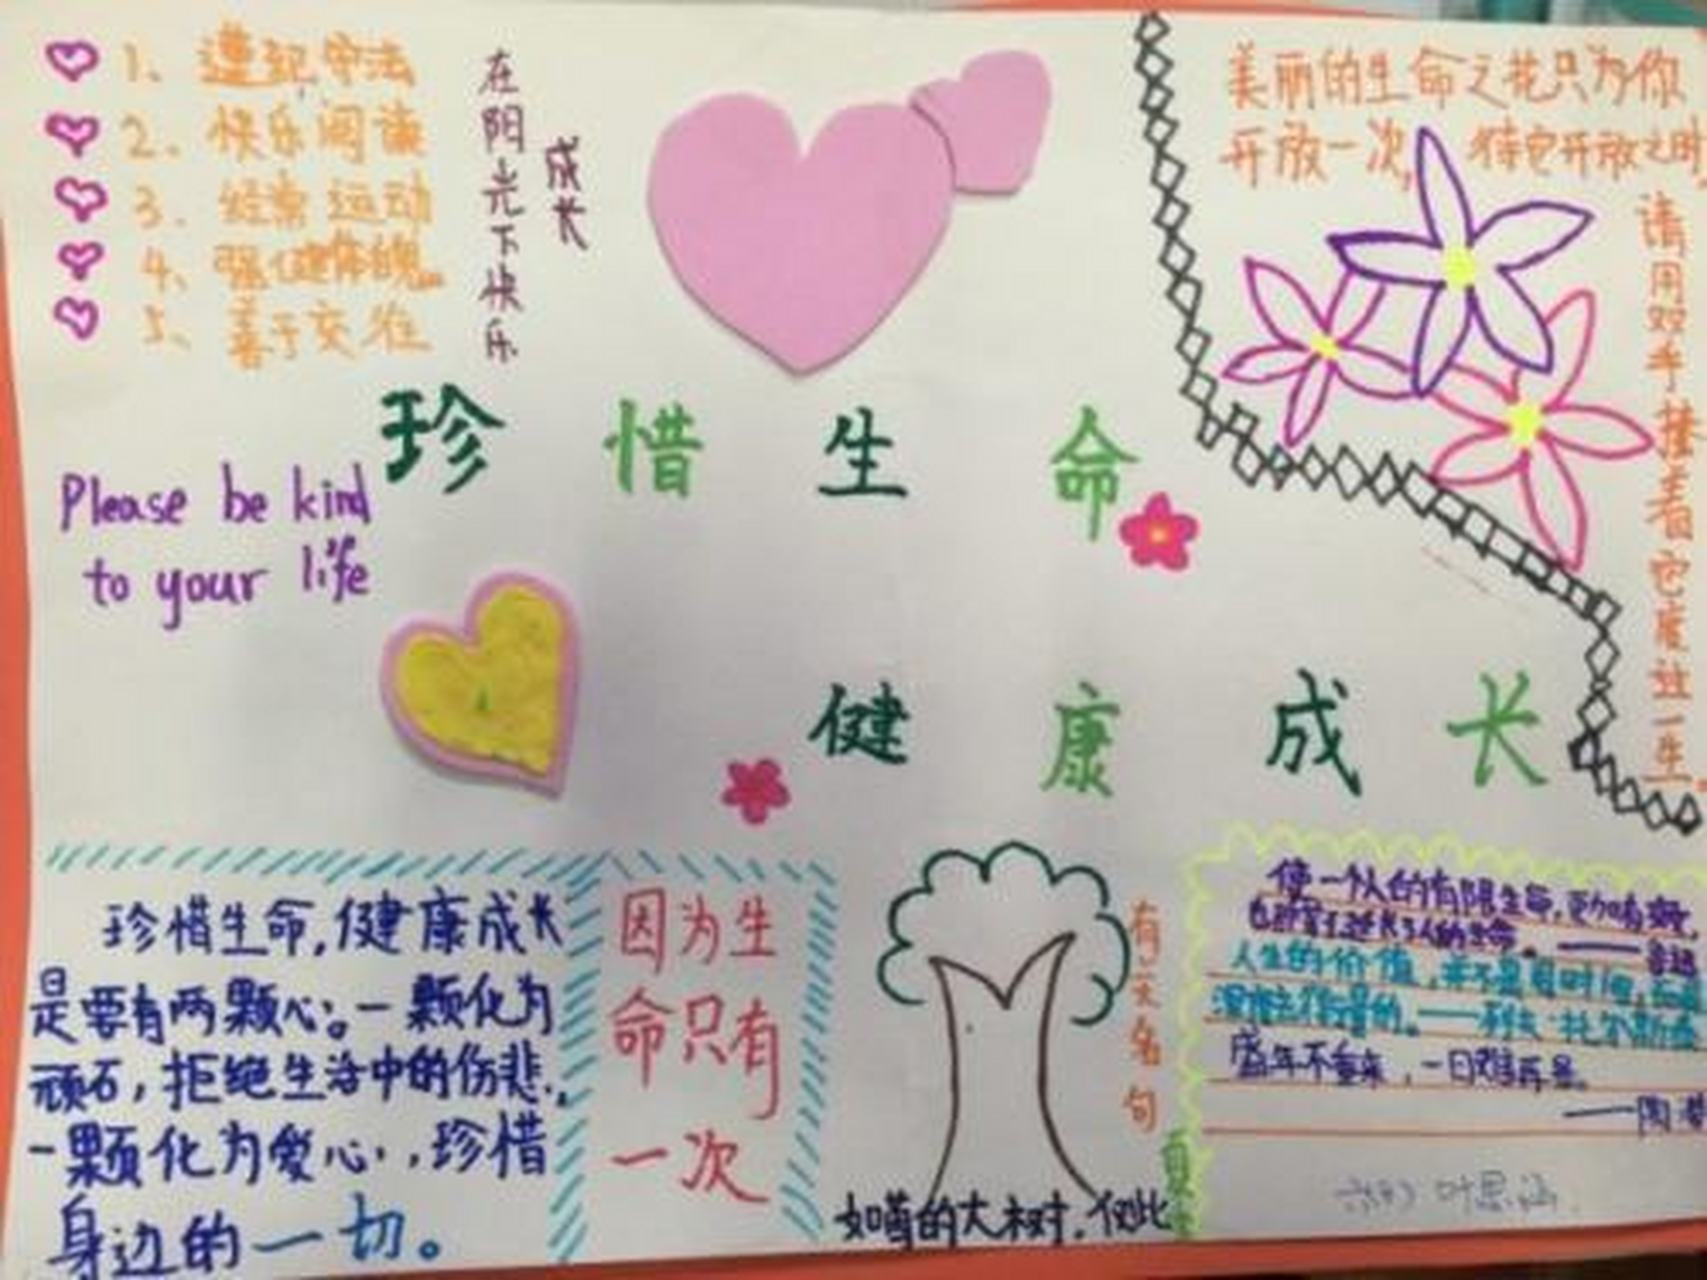 1. 遵纪守法
2. 快乐阅读
3. 经常运动
4. 强健体魄。
5. 善于交往
在阳光下快乐
成长
美丽的生命之花只为你
开放一次, 待它开放之时
请用双手接
着它度过一生
珍惜生命
Please be kind
to your life
健康成长
珍惜生命,健康成长
是要有两颗心。一颗化为
顽石,拒绝生活中的伤悲,
一颗化为爱心,珍惜
身边的一切。
因为生
命只有
一次
有关名句
使一个人的有限生命,更加有效,
也即等于延长了人的生命。——鲁迅
人生的价值,并不是用时间,而是
深度去衡量的。——列夫·托尔斯泰
盛年不重来,一日难再晨。
——陶潜
叶思涵